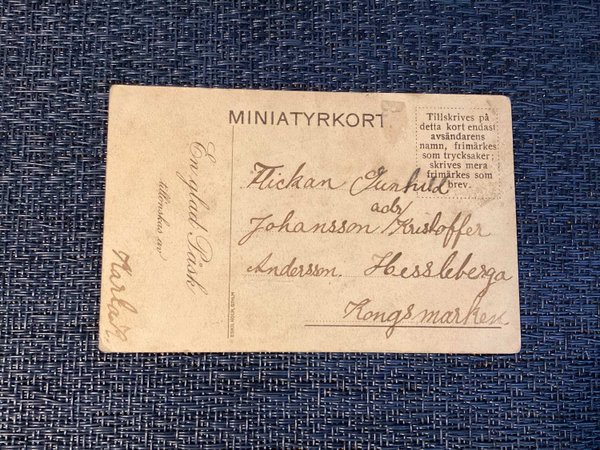 MINIATYRKORT
Tillskrives på
detta kort endast
avsändarens
namn, frimärkes
som trycksaker;
skrives mera
frimärkes som
brev.
En glad Påsk
tillönskas av
Karla
Flickan Gunhild
adr/
Johansson Kristoffer
Andersson. Hessleberga
Kongsmarken
ESKIL HOLM, STHLM